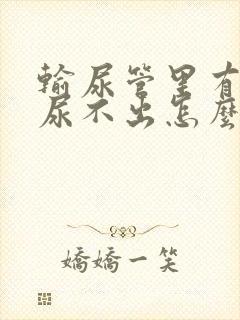 輸尿管里有
尿不出怎麼
嬌嬌一笑